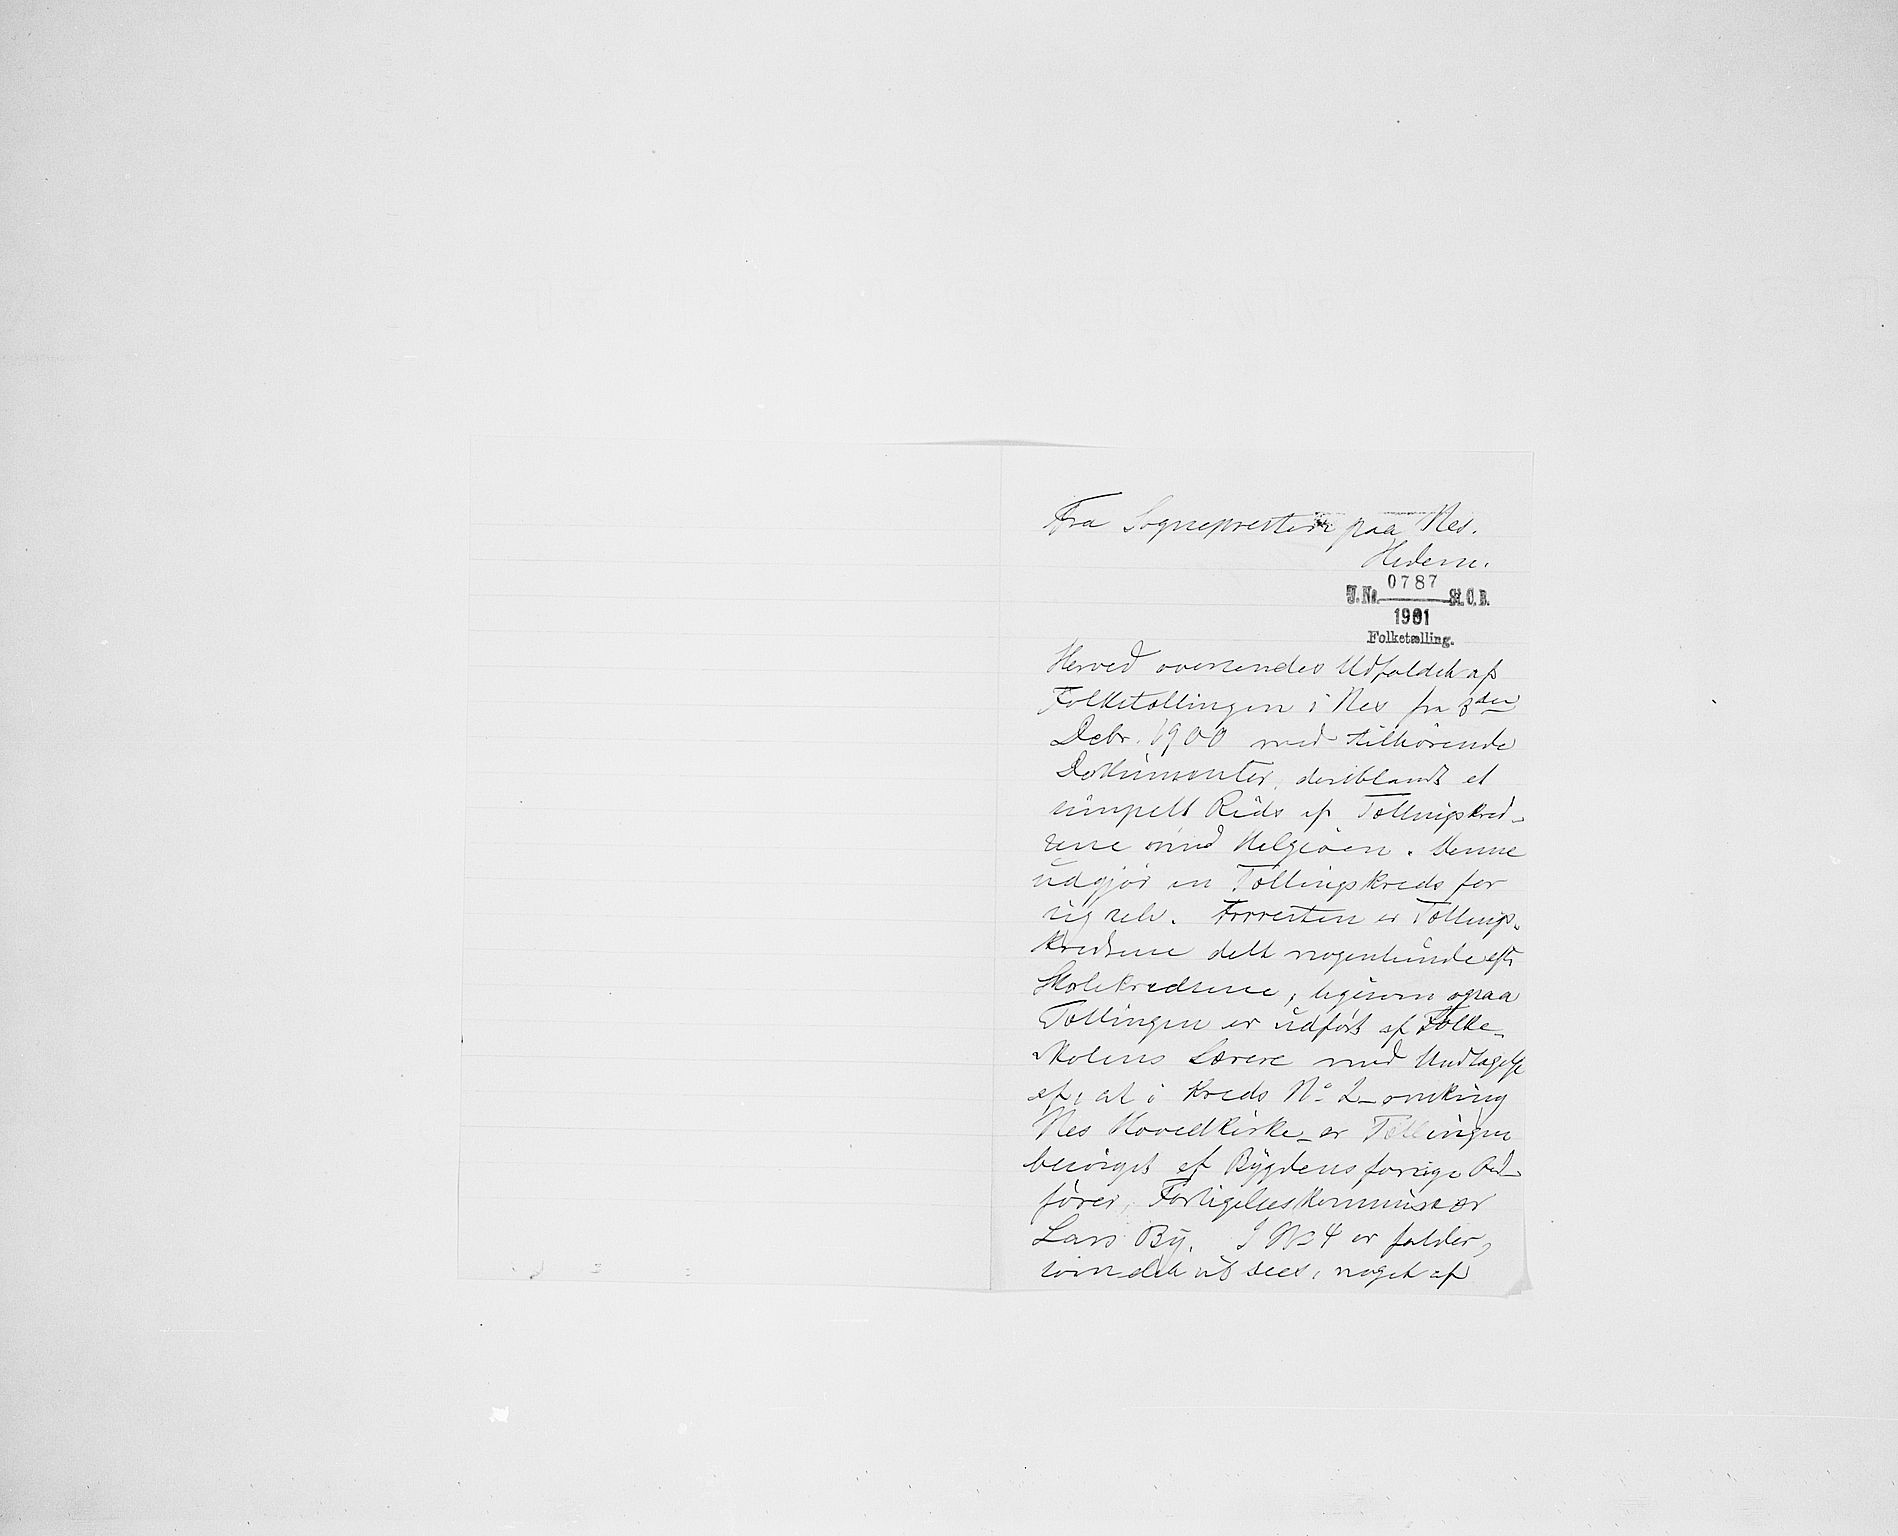 Fra Sognepresten paa Nes.
Hedem.
0787
J. No. St. C. B.
1901
Folketælling.
Herved oversendes Udfaldet af
Folketællingen i Nes fra 3den
Decbr. 1900 med tilhørende
Dokumenter, deriblandt et
simpelt Rids af Tællingskred-
sene med Helgøen. Denne
udgjør en Tællingskreds for
sig selv. Forresten er Tællings-
kredsene delt nogenlunde efter
Skolekredsene, ligesom ogsaa
Tællingen er udført af Folke-
skolens Lærere med Undtagelse
af, at i Kreds No 2 - omkring
Nes Hovedkirke - er Tællingen
besørget af Bygdens forrige Ord-
fører, Forligelseskommissær
Lars By. I No 4 er falder,
som det vil sees, noget af